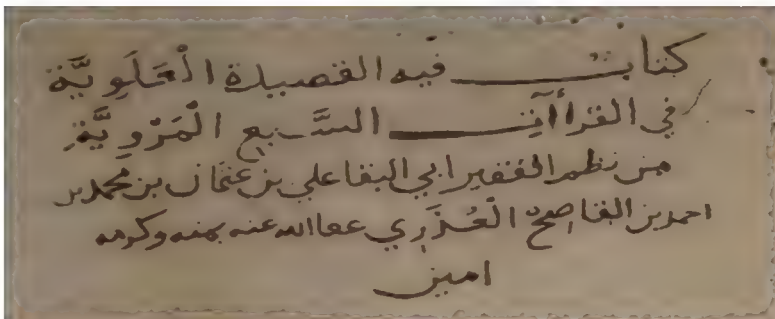 كتاب فيه القصيدة العَلَويَّة
في القراآت السَّبع المَرْويَّةِ
من نظم الفقير ابي البقا علي بن عثمان بن محمد بن
احمد بن القاصح العُذَري عفا الله عنه بمنه وكرمه
امين